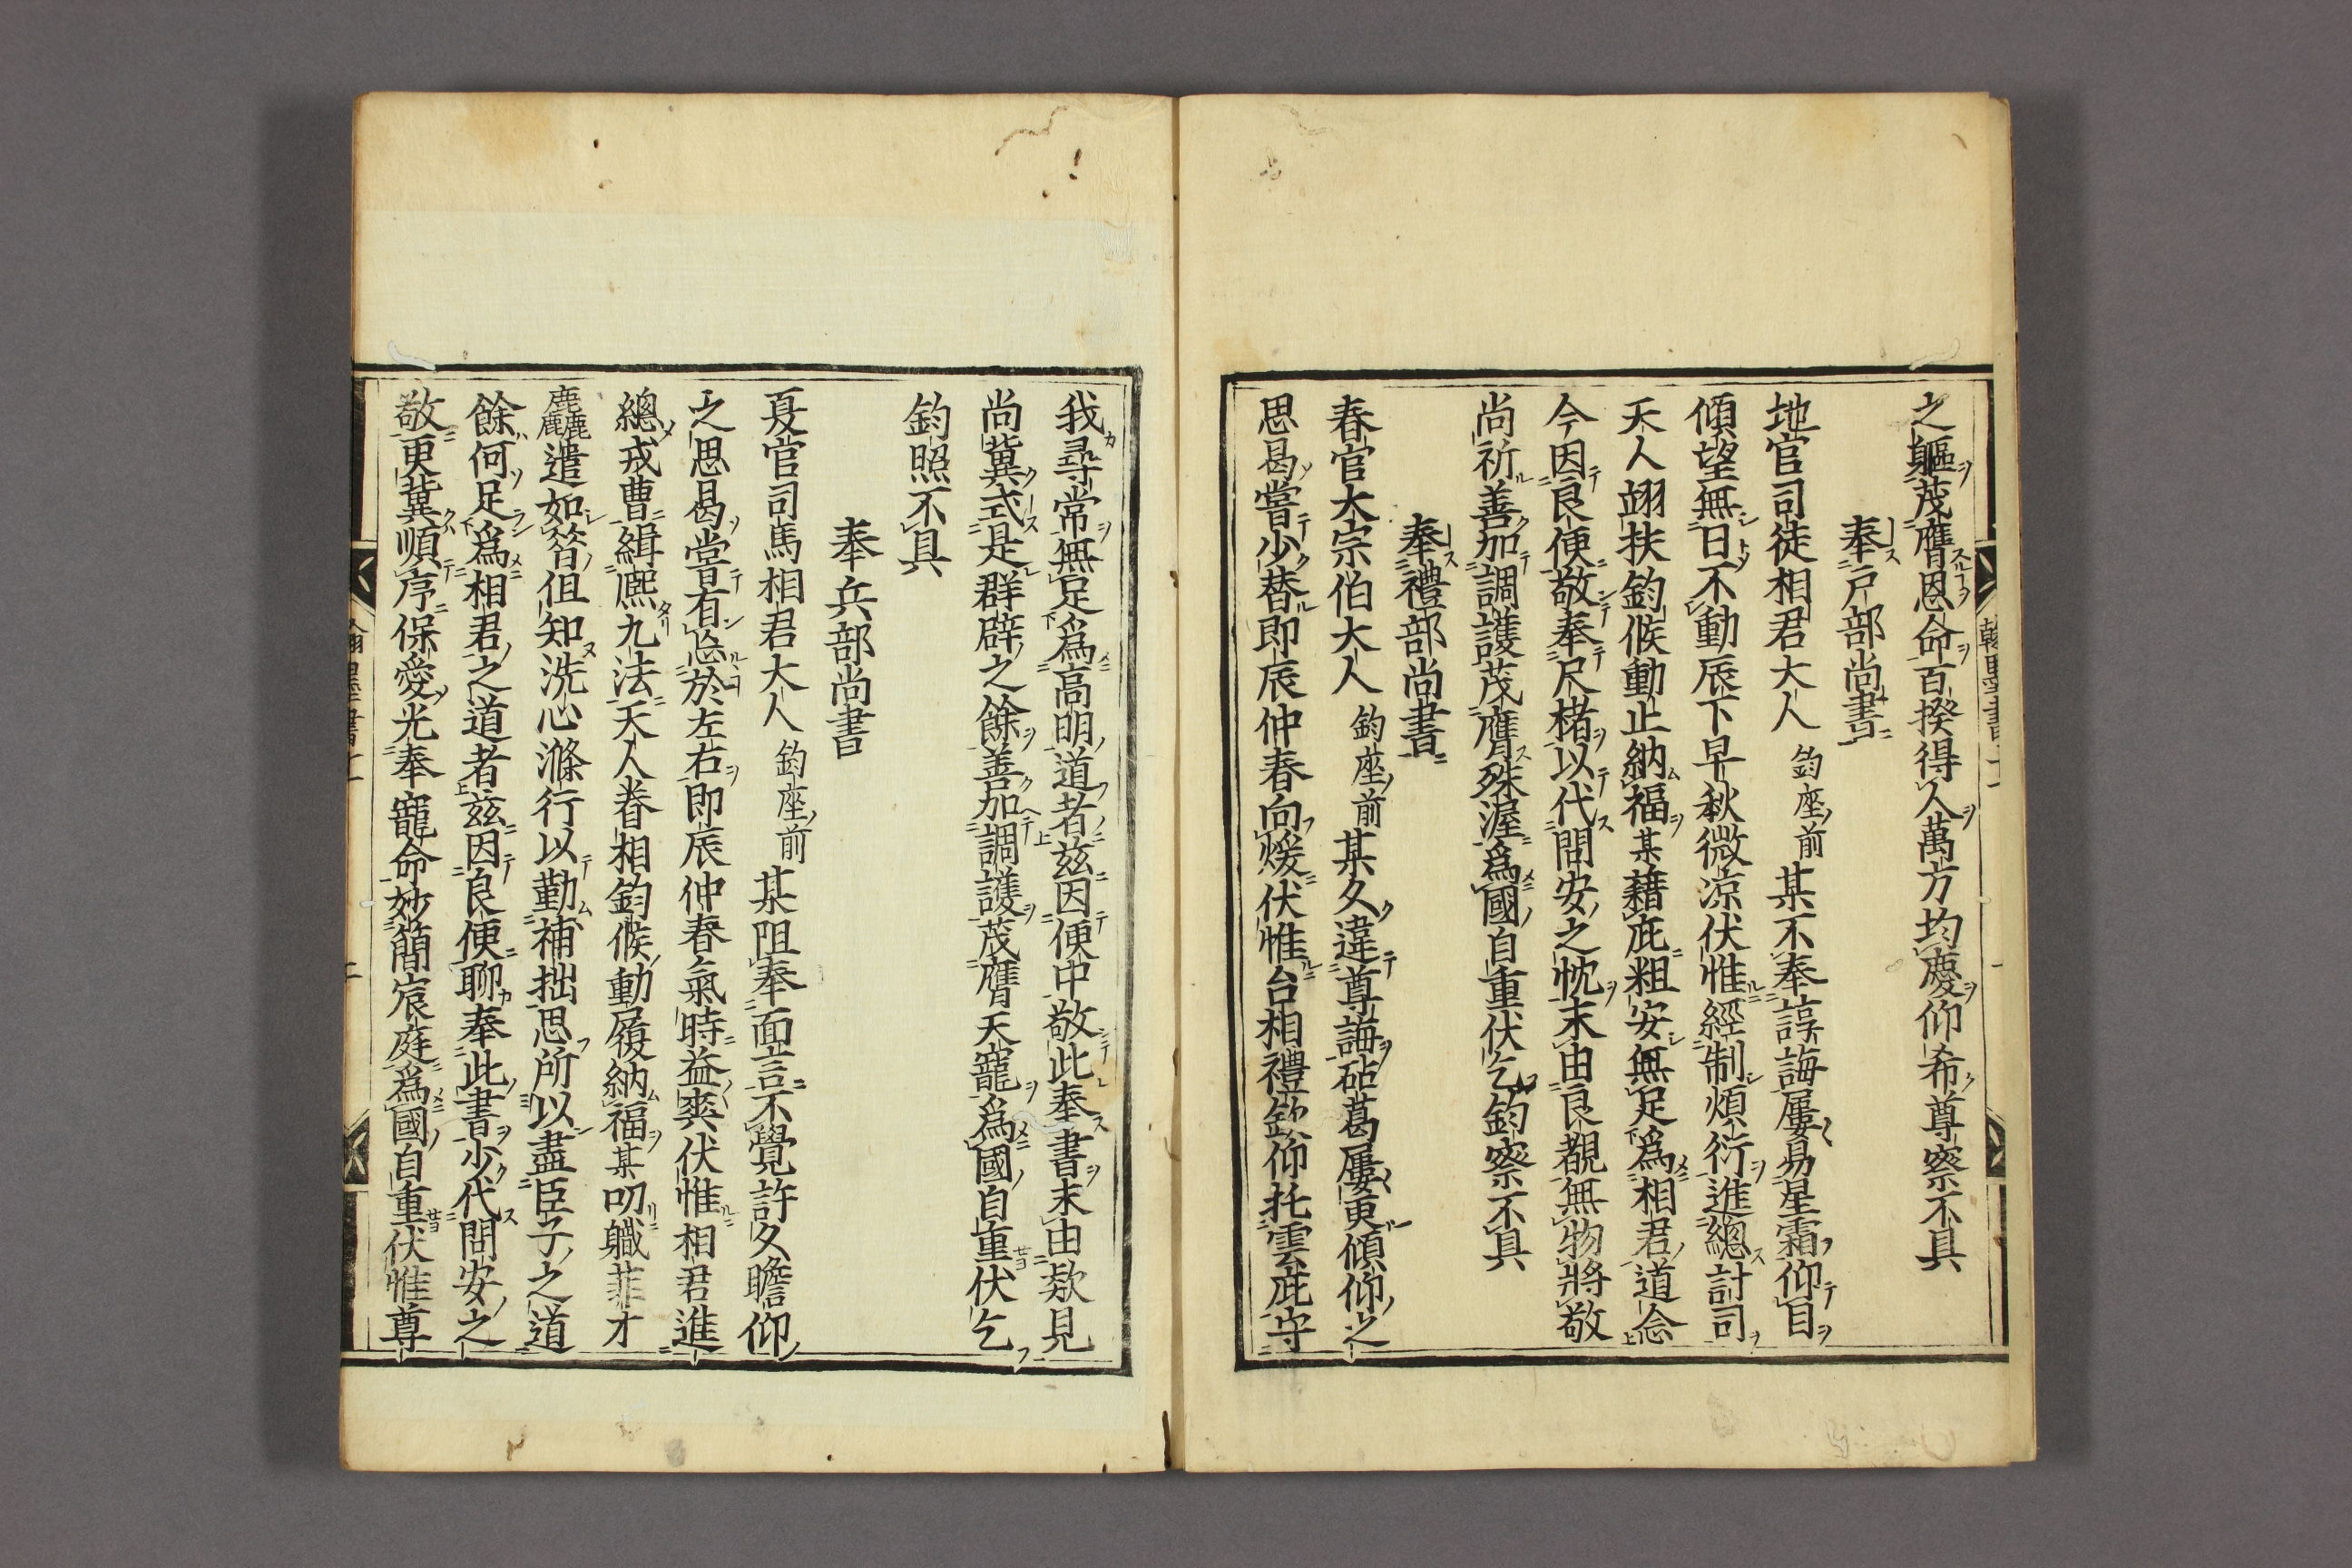 之軀茂膺恩命百揆得人萬方均慶仰希尊察不具
奉戸部尚書
地官司徒相君大人 鈞座前 某不奉諄誨屢易星霜仰目
傾望無日不動辰下早秋微涼伏惟經制煩衍進總計司
天人翊扶鈞候動止納福某藉庇粗安無足爲相君道念
今因良便敬奉尺楮以代問安之忱末由良覿無物將敬
尚祈善加調護茂膺殊渥爲國自重伏乞鈞察不具
奉禮部尚書
春官大宗伯大人 鈞座前 某久違尊誨砧葛屢更傾仰之
思曷嘗少替即辰仲春向煖伏惟台相禮欽仰托雲庇守
我尋常無足爲高明道者茲因便中敬此奉書末由欵見
尚冀式是群辟之餘善加調護茂膺天寵爲國自重伏乞
鈞照不具
奉兵部尚書
夏官司馬相君大人 鈞座前 某阻奉面言不覺許久瞻仰
之思曷嘗有忘於左右即辰仲春氣時益爽伏惟相君進
總戎曹緝熈九法天人眷相鈞候動履納福某叨職菲才
麤遣如昝但知洗心滌行以勤補拙思所以盡臣子之道
餘何足爲相君之道者茲因良便聊奉此書少代問安之
敬更冀順序保愛光奉寵命妙簡宸庭爲國自重伏惟尊